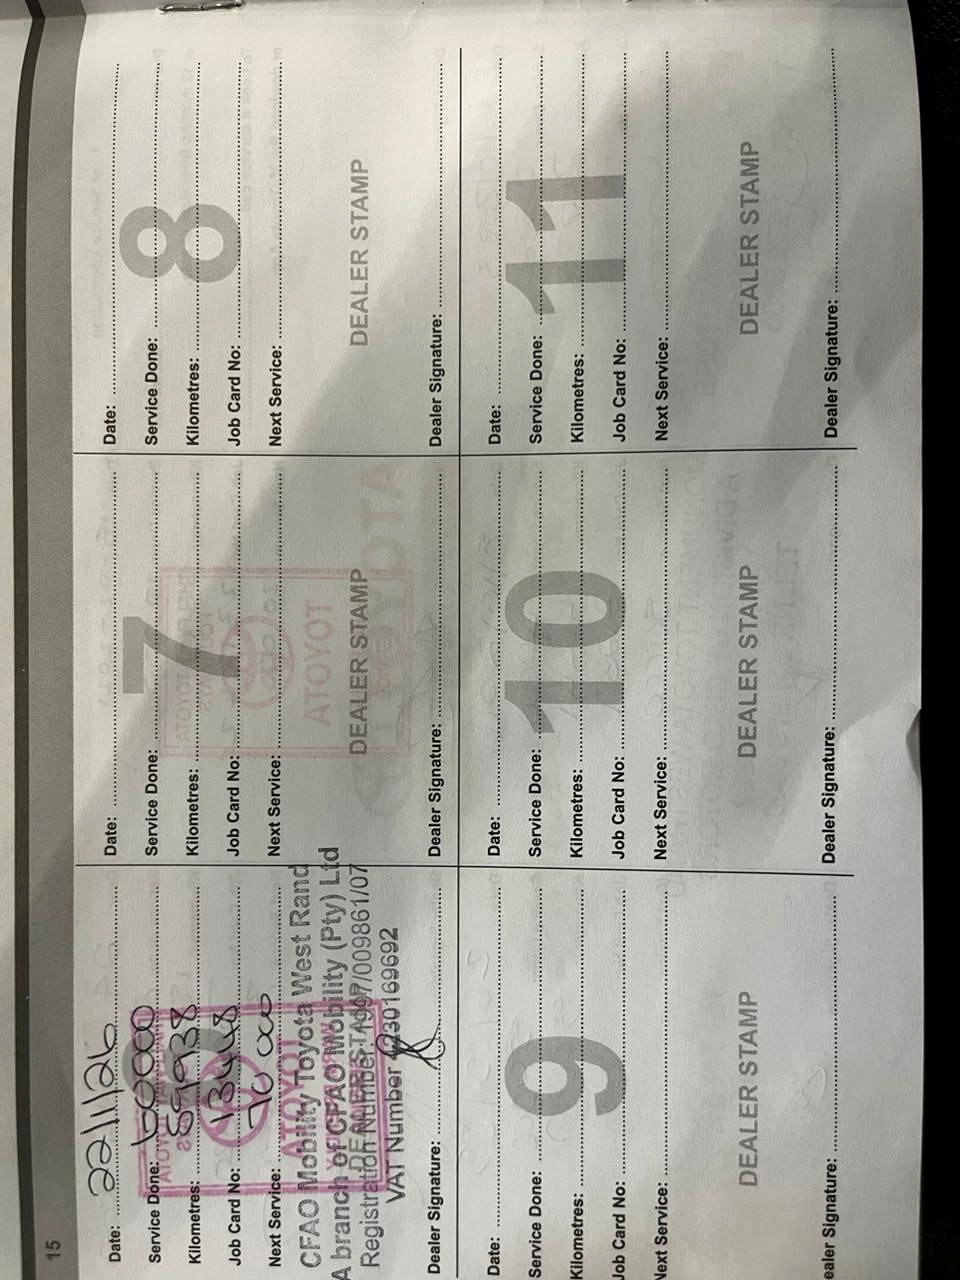 15
Date: 22/1/26
Service Done: 60000
Kilometres: 59938
Job Card No: 13448
Next Service: 70 000
CFAO Mobility Toyota West Rand
A branch of CFAO Mobility (Pty) Ltd
DEALER STAMP
Registration Number: 1997/009861/07
VAT Number 4230169692
Dealer Signature:
7
Date:
Service Done:
Kilometres:
Job Card No:
Next Service:
DEALER STAMP
Dealer Signature:
8
Date:
Service Done:
Kilometres:
Job Card No:
Next Service:
DEALER STAMP
Dealer Signature:
9
Date:
Service Done:
Kilometres:
Job Card No:
Next Service:
DEALER STAMP
ealer Signature:
10
Date:
Service Done:
Kilometres:
Job Card No:
Next Service:
DEALER STAMP
Dealer Signature:
11
Date:
Service Done:
Kilometres:
Job Card No:
Next Service:
DEALER STAMP
Dealer Signature: